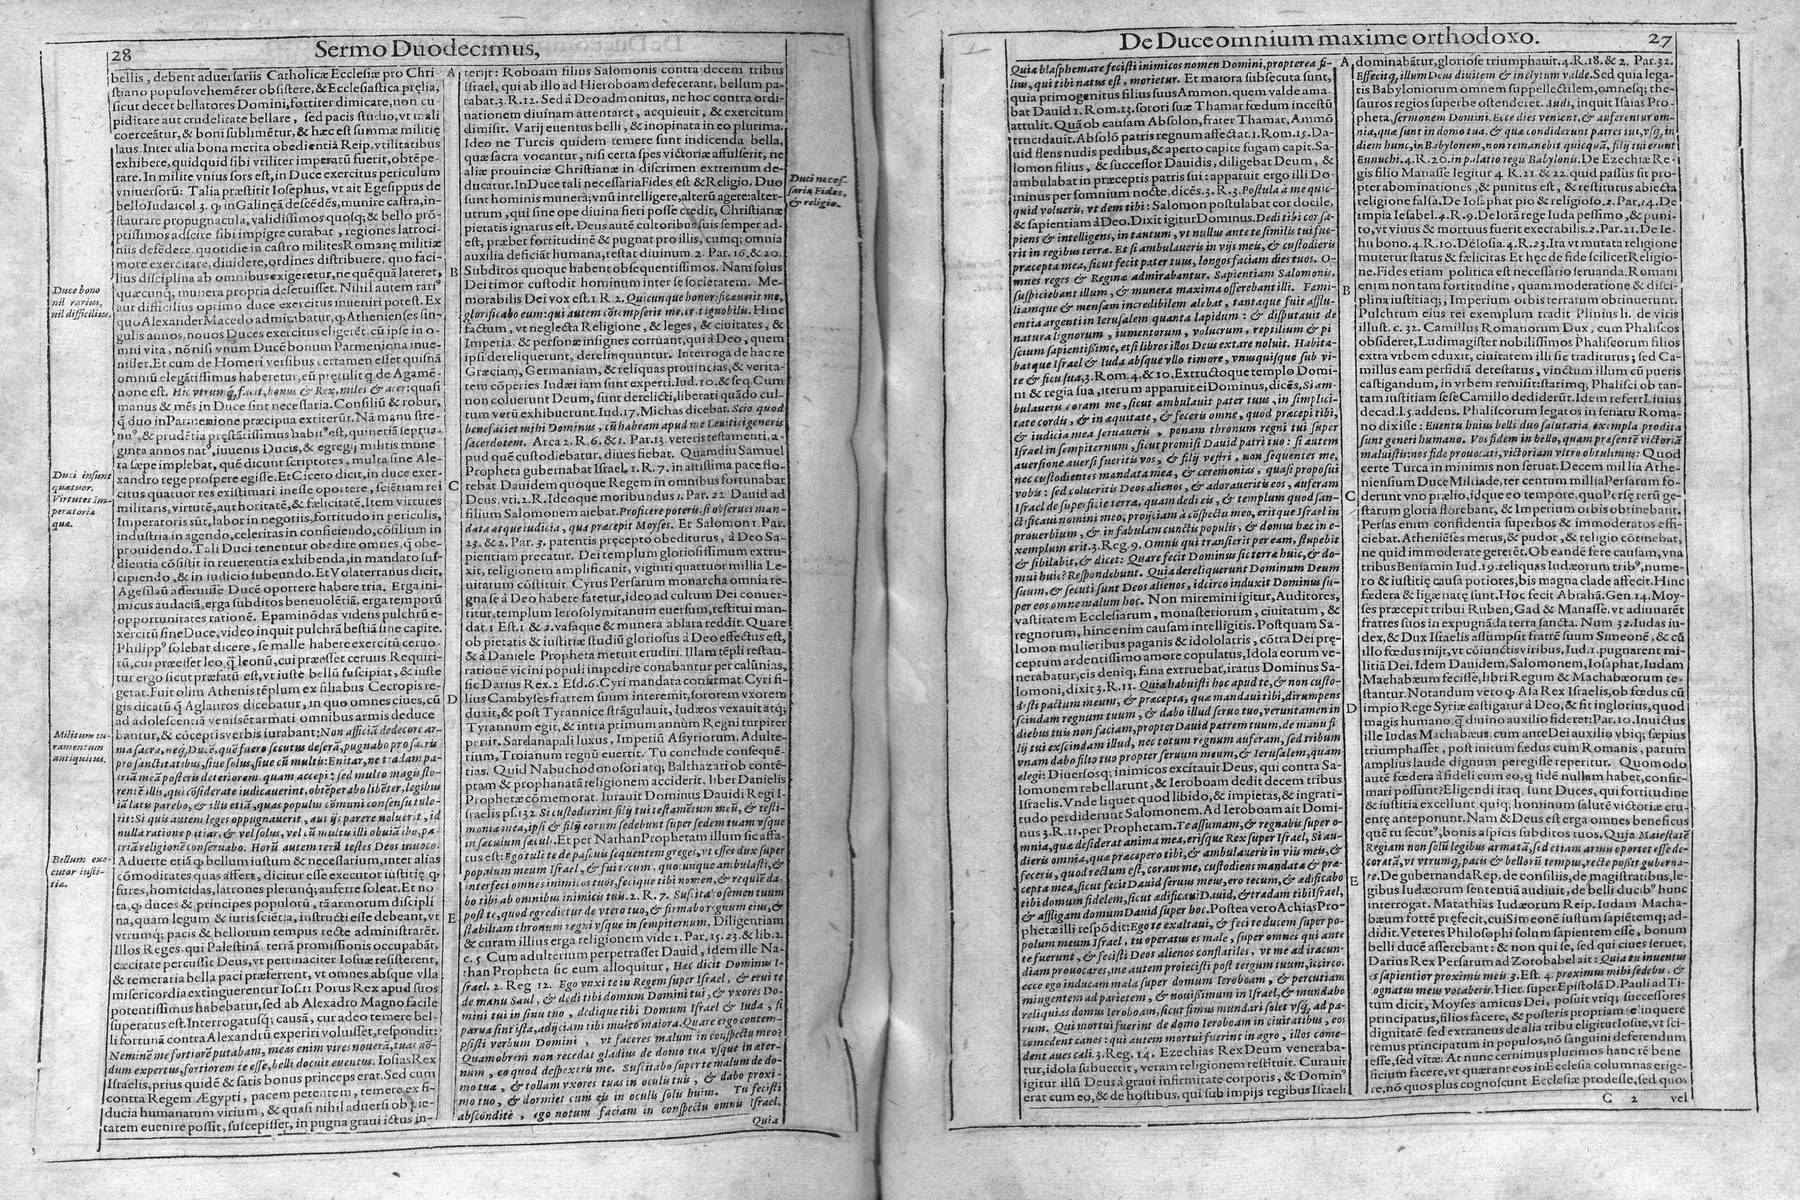 28
Sermo Duodecimus,
bellis, debent aduersariis Catholicæ Ecclesiæ pro Chri-
stiano populo vehemẽter obsistere, & Ecclesiastica pręlia,
sicut decet bellatores Domini, fortiter dimicare, non cu-
piditate aut crudelitate bellare, sed pacis studio, vt mali
coerceãtur, & boni sublimětur, & hæc est summæ militię
laus. Inter alia bona merita obedientiã Reip. vtilitatibus
exhibere, quidquid sibi vtiliter imperatũ fuerit, obtẽpe-
rare. In milite vnius sors est, in Duce exercitus periculum
vniuersorũ: Talia præstitit Iosephus, vt ait Egesippus de
bello Iudaico l. 3. ꝙ in Galineã descẽdẽs, munire castra, in-
staurare propugnacula, validissimos quosq; & bello prõ-
ptissimos adscire sibi impigre curabat, regiones latroci-
niis defẽdere, quotidie in castro milites Romanę militiæ
more exercitare, diuidere, ordines distribuere, quo faci-
lius disciplina ab omnibus exigeretur, ne quẽquã lateret,
quæcunq; munera propria deseruisset. Nihil autem rariꝰ
aut difficilius optimo duce exercitus inueniri potest. Ex
quo Alexander Macedo admirabatur, ꝙ Athenienses sin-
gulis annos, nouos Duces exercitus eligerẽt cũ ipse in o-
mni vita, nõ nisi vnum Ducẽ bonum Parmeniona inue-
nisset. Et cum de Homeri versibus certamen esset quisnã
omniũ elegãtissimus haberetur, eũ prętulit q̃ de Agamẽ-
none est. Hic vtrumq́; facit, bonus & Rex, miles & acer: quasi
manus & mẽs in Duce sint necessaria. Consiliũ & robur,
q̃ duo in Parmenione præcipua extiterũt. Nã manu stre-
nuꝰ, & prudẽtia pręstãtissimus habitꝰ est, quin etiã septua-
ginta annos natꝰ, iuuenis Ducis, & egregij militis mune
ra sæpe implebat, quẽ dicunt scriptores, multa sine Ale-
xandro rege prospere egisse. Et Cicero dicit, in duce exer-
citus quatuor res existimari inesse oportere, sciẽtiam rei
militaris, virtutẽ, authoritatẽ, & fælicitatẽ. Item virtutes
Imperatoris sũt, labor in negotiis, fortitudo in periculis,
industria in agendo, celeritas in conficiendo, cõsilium in
prouidendo. Tali Duci tenentur obedire omnes, q̃ obe-
dientia cõsistit in reuerentia exhibenda, in mandato sus-
cipiendo, & in iudicio subeundo. Et Volaterranus dicit,
Agesilaũ asseruisse Ducẽ oportere habere tria. Erga ini-
micus audaciã, erga subditos beneuolẽtiã, erga temporũ
opportunitates rationẽ. Epaminõdas videns pulchrũ e-
xercitũ sine Duce, video inquit pulchrã bestiã sine capite.
Philippꝰ solebat dicere, se malle habere exercitũ ceruo-
rũ, cui præesset leo, q̃ leonũ, cui præesset ceruus Requiri-
tur ergo sicut præfatũ est, vt iuste bellũ suscipiat, & iuste
gerat. Fuit olim Athenis tẽplum ex filiabus Cecropis re-
gis dicatũ q̃ Aglauros dicebatur, in quo omnes ciues, cũ
ad adolescentiã venissẽt armati omnibus armis deduce
bantur, & cõceptis verbis iurabant: Non afficiã dedecore ar-
ma sacra, neq; Ducẽ, quẽ fuero secutus deserã, pugnabo pro sacris
pro sanctitatibus, siue solus, siue cũ multis: Enitar, ne tradam pa-
triã meã posteris deteriorem quam accepi: sed multo magis flo-
rentẽ illis, qui cõsiderate iudicauerint, obtẽperabo libẽter, legibus
iã latis parebo, & illis etiã, quas populus cõmuni consensu tule-
rit: Si quis autem leges oppugnauerit, aut ijs parere noluerit, id
nulla ratione patiar, & vel solus, vel cũ multis illi obuiã ibo, pa-
triã religionẽ conseruabo. Horũ autem rerũ testes Deos inuoco.
Aduerte etiã ꝙ bellum iustum & necessarium, inter alias
cõmoditates quas affert, dicitur esse executor iustitię ꝙ
fures, homicidas, latrones plerunq; auferre soleat. Et no
ta, ꝙ duces & principes populorũ, tã armorum discipli
na, quam legum & iuris sciẽtia, instructi esse debeant, vt
vtrumq; pacis & bellorum tempus recte administrarẽt.
Illos Reges qui Palestinã terrã promissionis occupabãt,
cæcitate percussit Deus, vt pertinaciter Iosuæ resisterent,
& temeraria bella paci præferrent, vt omnes absque vlla
misericordia extinguerentur Ios. 11 Porus Rex apud suos
potentissimus habebatur, sed ab Alexãdro Magno facile
superatus est. Interrogatusq; causã, cur adeo temere bel-
li fortunã contra Alexandrũ experiri voluisset, respondit:
Neminẽ me fortiorẽ putabam, meas enim vires nouerã, tuas nõ-
dum expertus, fortiorem te esse, belli docuit euentus. Iosias Rex
Israelis, prius quidẽ & satis bonus princeps erat. Sed cum
contra Regem Ægypti, pacem petentem, temere ex fi-
ducia humanarum virium, & quasi nihil aduersi ob pie-
tatem euenire possit, suscepisset, in pugna graui ictus in-
Duce bono
nil rarius,
nil difficilius.
Duci insunt
quatuor.
Virtutes im-
peratoria
quæ.
Militum iu-
ramentum
antiquitus.
Bellum exe-
cutor iusti-
tiæ.
A
B
C
D
E
terijt: Roboam filius Salomonis contra decem tribus
Israel, qui ab illo ad Hieroboam defecerant, bellum pa-
rabat. 3. R. 12. Sed à Deo admonitus, ne hoc contra ordi-
nationem diuinam attentaret, acquieuit, & exercitum
dimisit. Varij euentus belli, & inopinata in eo plurima.
Ideo ne Turcis quidem temere sunt indicenda bella,
quæ sacra vocantur, nisi certa spes victoriæ affulserit, ne
aliæ prouinciæ Christianæ in discrimen extremum de-
ducatur. In Duce tali necessaria Fides est & Religio. Duo
sunt hominis munera; vnũ intelligere, alterũ agere: alter-
utrum, qui sine ope diuina fieri posse credit, Christianæ
pietatis ignarus est. Deus autẽ cultoribus suis semper ad-
est, præbet fortitudinẽ & pugnat pro illis, cumq; omnia
auxilia deficiãt humana, restat diuinum. 2. Par. 16. & 20.
Subditos quoque habent obsequentissimos. Nam solus
Dei timor custodit hominum inter se societatem. Me-
morabilis Dei vox est. 1 R. 2. Quicunque honorificauerit me,
glorificabo eum: qui autem cõtempserit me, erit ignobilis. Hinc
factum, vt neglecta Religione, & leges, & ciuitates, &
Imperia, & personæ insignes corruant, qui à Deo, quem
ipsi dereliquerunt, derelinquuntur. Interroga de hac re
Græciam, Germaniam, & reliquas prouincias, & verita-
tem cõperies Iudæi iam sunt experti. Iud. 10. & seq. Cum
non coluerunt Deum, sunt derelicti, liberati quãdo cul-
tum verũ exhibuerunt. Iud. 17. Michas dicebat. Scio quod
benefaciet mihi Dominus, cũ habeam apud me Leuitici generis
sacerdotem. Arca 2. R. 6. & 1. Par. 13. veteris testamenti, a-
pud quẽ custodiebatur, diues fiebat. Quamdiu Samuel
Propheta gubernabat Israel, 1. R. 7. in altissima pace flo-
rebat Dauidem quoque Regem in omnibus fortunabat
Deus, vti. 2. R. Ideoque moribundus 1. Par. 22 Dauid ad
filium Salomonem aiebat. Proficere poteris, si obserues man-
data atque iudicia, qua præcepit Moyses. Et Salomon 1. Par.
23. & 2. Par. 3. parentis pręcepto obediturus, à Deo Sa-
pientiam precatur. Dei templum gloriosissimum extru-
xit, religionem amplificauit, viginti quattuor millia Le-
uitarum cõstituit. Cyrus Persarum monarcha omnia re-
gna se à Deo habere fatetur, ideo ad cultum Dei conuer-
titur, templum Ierosolymitanum euersum, restitui man-
dat. 1 Est. 1 & 2. vasaque & munera ablata reddit. Quare
ob pietatis & iustitiæ studiũ gloriosus à Deo effectus est,
& à Daniele Propheta meruit erudiri. Illam tẽpli restau-
rationẽ vicini populi impedire conabantur per calũnias,
sic Darius Rex. 2 Esd. 6. Cyri mandata confirmat. Cyri fi-
lius Cambyses fratrem suum interemit, sororem vxorem
duxit, & post Tyrannice strãgulauit, Iudæos vexauit atq;
Tyrannum egit, & intra primum annũm Regni turpiter
periit. Sardanapali luxus, Imperiũ Assyriorum, Adulte-
rium, Troianum regnũ euertit. Tu conclude consequẽ-
tias. Quid Nabuchodonosori atq; Balthazari ob contẽ-
ptam & prophanatã religionem acciderit, liber Danielis
Prophetæ cõmemorat. Iurauit Dominus Dauidi Regi I-
sraelis ps. 132. Si custodierint filij tui testamẽtum meũ, & testi-
monia mea, ipsi & filij eorum sedebunt super sedem tuam vsque
in sæculum sæculi. Et per Nathan Prophetam illum sic affa-
tus est: Ego tuli te de pascuis sequentem greges, vt esses dux super
populum meum Israel, & fui tecum, quocunque ambulasti, &
interfeci omnes inimicos tuos, fecique tibi nomen, & requiẽ da-
bo tibi ab omnibus inimicis tuis. 2. R. 7. Suscitabo semen tuum
post te, quod egredietur de vtero tuo, & firmabo regnum eius, &
stabiliam thronum regni vsque in sempiternum. Diligentiam
& curam illius erga religionem vide 1. Par. 15. 23. & lib. 2.
c. 5 Cum adulterium perpetrasset Dauid, idem ille Na-
than Propheta sic eum alloquitur, Hæc dicit Dominus I-
srael. 2. Reg 12. Ego vnxi te in Regem super Israel, & erui te
de manu Saul, & dedi tibi domum Domini tui, & vxores Do-
mini tui in sinu tuo, dedique tibi Domum Israel & Iuda, si
parua sint ista, adijciam tibi multo maiora. Quare ergo contem-
psisti verbum Domini, vt faceres malum in conspectu meo?
Quamobrem non recedas gladius de domo tua vsque in æter-
num, eo quod despexeris me. Suscitabo super te malum de do-
mo tua, & tollam vxores tuas in oculis tuis, & dabo proxi-
mo tuo, & dormiet cum ejs in oculis solis huius. Tu fecisti
abscondite, ego notum faciam in conspectu omnis Israel.
Quia
Duci neces-
saria Fides,
& religio.
De Duce omnium maxime orthodoxo.
27
Quia blasphemare fecisti inimicos nomen Domini, propterea fi-
lius, qui tibi natus est, morietur. Et maiora subsecuta sunt,
quia primogenitus filius suus Ammon, quem valde ama-
bat Dauid 1. Rom. 13. sorori suæ Thamar fœdum incestũ
attulit. Quã ob causam Absolon, frater Thamar, Ammõ
trucidauit. Absolõ patris regnum affectat. 1. Rom. 15. Da-
uid flens nudis pedibus, & aperto capite fugam capit. Sa-
lomon filius, & successor Dauidis, diligebat Deum, &
ambulabat in præceptis patris sui: apparuit ergo illi Do-
minus per somnium nocte. dicẽs. 3. R. 3. Postula à me quic-
quid volueris, vt dem tibi: Salomon postulabat cor docile,
& sapientiam à Deo. Dixit igitur Dominus. Dedi tibi cor sa-
piens & intelligens, in tantum, vt nullus ante te similis tui fue-
rit in regibus terra. Et si ambulaueris in vijs meis, & custodieris
præcepta mea, sicut fecit pater tuus, longos faciam dies tuos. O-
mnes reges & Reginæ admirabantur. Sapientiam Salomonis,
suspiciebant illum, & munera maxima offerebant illi. Fami-
liamque & mensam incredibilem alebat, tantaque fuit afflu-
entia argenti in Ierusalem quanta lapidum: & disputauit de
natura lignorum, iumentorum, volucrum, reptilium & pi
scium sapientissime, etsi libros illos Deus extare noluit. Habita-
batque Israel & Iuda absque vllo timore, vnusquisque sub vi-
te & ficu sua, 3. Rom. 4. & 10. Extructoque templo Domi-
ni & regia sua, iterum apparuit ei Dominus, dicẽs, Si am-
bulaueris coram me, sicut ambulauit pater tuus, in simplici-
tate cordis, & in æquitate, & feceris omne, quod præcepi tibi,
& iudicia mea seruaueris, ponam thronum regni tui super
Israel in sempiternum, sicut promisi Dauid patri tuo: si autem
auersione auersi fueritis vos, & filij vestri, non sequentes me,
nec custodientes mandata mea, & ceremonias, quasi proposui
vobis: sed colueritis Deos alienos, & adoraueritis eos, auferam
Israel de superficie terræ, quam dedi eis, & templum quod san-
ctificaui nomini meo, proijciam à cõspectu meo, eritque Israel in
prouerbium, & in fabulam cunctis populis, & domus hæc in e-
xemplum erit. 3. Reg 9. Omnis qui transierit per eam, stupebit
& sibilabit, & dicet: Quare fecit Dominus sic terræ huic, & do-
mui huic? Respondebunt. Quia dereliquerunt Dominum Deum
suum, & secuti sunt Deos alienos, idcirco induxit Dominus su-
per eos omne malum hoc. Non miremini igitur, Auditores,
vastitatem Ecclesiarum, monasteriorum, ciuitatum, &
regnorum, hinc enim causam intelligitis. Postquam Sa-
lomon mulieribus paganis & idololatris, cõtra Dei pręˑ
ceptum ardentissimo amore copulatus, Idola eorum ve-
nerabatur, eis deniq; fana extruebat, iratus Dominus Sa-
lomoni, dixit 3. R. 11. Quia habuisti hoc apud te, & non custo-
disti pactum meum, & præcepta, quæ mandaui tibi, dirumpens
scindam regnum tuum, & dabo illud seruo tuo, veruntamen in
diebus tuis non faciam, propter Dauid patrem tuum, de manu fi
lij tui exscindam illud, nec totum regnum auferam, sed tribum
vnam dabo filio tuo propter seruum meum, & Ierusalem, quam
elegi: Diuersosq; inimicos excitauit Deus, qui contra Sa-
lomonem rebellarunt, & Ieroboam dedit decem tribus
Israelis. Vnde liquet quod libido, & impietas, & ingrati-
tudo perdiderunt Salomonem. Ad Ieroboam ait Domi-
nus 3. R. 11. per Prophetam. Te assumam, & regnabis super o-
mnia, quæ desiderat anima mea, erisque Rex super Israel, Si au-
dieris omnia, quæ præcepero tibi, & ambulaueris in viis meis, &
feceris, quod rectum est, coram me, custodiens mandata & præ-
cepta mea, sicut fecit Dauid seruus meus, ero tecum, & ædificabo
tibi domum fidelem, sicut ædificaui Dauid, & tradam tibi Israel,
& affligam domum Dauid super hoc. Postea vero Achias Pro-
phetæ illi respõdit: Ego te exaltaui, & feci te ducem super po-
polum meum Israel, tu operatus es male, super omnes qui ante
te fuerunt, & fecisti Deos alienos conflatiles, vt me ad iracun-
diam prouocares, me autem proiecisti post tergum tuum, iccirco
ecce ego inducam mala super domum Ieroboam, & percutiam
mingentem ad parietem, & nouissimum in Israel, & mundabo
reliquias domus Ieroboam, sicut fimus mundari solet vsq; ad pa-
rum. Qui mortui fuerint de domo Ieroboam in ciuitatibus, eos
comedent canes: qui autem mortui fuerint in agro, illos come-
dent aues cæli. 3. Reg. 14. Ezechias Rex Deum veneraba-
tur, idola subuertit, veram religionem restituit. Curauit
igitur illũ Deus à graui infirmitate corporis, & Dominꝰ
erat cum eo, & de hostibus, qui sub impijs regibus Israeli
A
B
C
D
E
dominabãtur, gloriose triumphauit. 4. R. 18. & 2. Par. 32.
Effecitq; illum Deus diuitem & inclytum valde. Sed quia lega-
tis Babyloniorum omnem suppellectilem, omnesq; the-
sauros regios superbe ostenderet. Audi, inquit Isaias Pro-
pheta, sermonem Domini. Ecce dies venient, & auferentur om-
nia, quæ sunt in domo tua, & quæ condiderunt patres tui, vsq; in
diem hunc, in Babylonem, non remanebit quicquã, filij tui erunt
Eunuchi. 4. R. 20. in palatio regis Babylonis. De Ezechiæ Re-
gis filio Manasse legitur 4. R. 21. & 22. quid passus sit pro-
pter abominationes, & punitus est, & restitutus abiecta
religione falsa. De Iosaphat pio & religioso. 2. Par. 14. De
impia Iesabel. 4. R. 9. De Iorã rege Iuda pessimo, & puni-
to, vt viuus & mortuus fuerit execrabilis. 2. Par. 21. De Ie-
hu bono. 4. R. 10. De Iosia. 4. R. 23. Ita vt mutata religione
mutetur status & fælicitas. Et hęc de fide scilicet Religio-
ne. Fides etiam politica est necessario seruanda. Romani
enim non tam fortitudine, quam moderatione & disci-
plina iustitiaq;, Imperium orbis terrarum obtinuerunt.
Pulchrum eius rei exemplum tradit Plinius li. de viris
illust. c. 32. Camillus Romanorum Dux, cum Phaliscos
obsideret, Ludimagister nobilissimos Phaliscorum filios
extra vrbem eduxit, ciuitatem illi sic traditurus; sed Ca-
millus eam perfidiã detestatus, vinctum illum cũ pueris
castigandum, in vrbem remisit: statimq; Phalisci ob tan-
tam iustitiam sese Camillo dediderũt. Idem refert Liuius
decad. l. 5. addens. Phaliscorum legatos in senatu Roma-
no dixisse: Euentu huius belli duo salutaria exempla prodita
sunt generi humano. Vos fidem in bello, quam presentẽ victoriã
maluistis: nos fide prouocati, victoriam vltro obtulimus: Quod
certe Turca in minimis non seruat. Decem millia Athe-
niensium Duce Milciade, ter centum millia Persarum fo-
derunt vno prælio, idque eo tempore, quo Persę rerũ ge-
starum gloria florebant, & Imperium orbis obtinebant.
Persas enim confidentia superbos & immoderatos effi-
ciebat. Atheniẽses metus, & pudor, & religio cõtinebat,
ne quid immoderate gererẽt. Ob eandẽ fere causam, vna
tribus Beniamin Iud. 19. reliquas Iudæorum tribꝰ, nume-
ro & iustitię causa potiores, bis magna clade affecit. Hinc
fœdera & ligæ natę sunt. Hoc fecit Abrahã. Gen. 14. Moy-
ses præcepit tribui Ruben, Gad & Manasse, vt adiuuarẽt
fratres suos in expugnãda terra sancta. Num 32. Iudas iu-
dex, & Dux Israelis assumpsit fratrẽ suum Simeonẽ, & cũ
illo fœdus inijt, vt coniunctis viribus, Iud. 1. pugnarent mi-
litiã Dei. Idem Dauidem, Salomonem, Iosaphat, Iudam
Machabæum fecisse, libri Regum & Machabæorum te-
stantur. Notandum vero ꝙ Asa Rex Israelis, ob fœdus cũ
impio Rege Syriæ castigatur à Deo, & fit inglorius, quod
magis humano, q̃ diuino auxilio fideret: Par. 10. Inuictus
ille Iudas Machabæus, cum ante Dei auxilio vbiq; sæpius
triumphasset, post initum fœdus cum Romanis, parum
amplius laude dignum peregisse reperitur. Quomodo
autẽ fœdera à fideli cum eo, q̃ fidẽ nullam habet, confir-
mari possunt? Eligendi itaq; sunt Duces, qui fortitudine
& iustitia excellunt, quiq; hominum salutẽ victoriæ cru-
entę anteponunt. Nam & Deus est erga omnes beneficus
quẽ tu secutꝰ, bonis aspicis subditos tuos. Quia Maiestatẽ
Regiam non solũ legibus armatã, sed etiam armis oportet esse de-
coratã, vt vtrumq; pacis & bellorũ tempus, recte possit guberna-
re. De gubernanda Rep. de consiliis, de magistratibus, le-
gibus Iudæorum sententiã audiuit, de belli ducibꝰ hunc
interrogat. Matathias Iudæorum Reip. Iudam Macha-
bæum fortẽ pręfecit, cui Simeonẽ iustum sapiẽtemq; ad-
didit. Veteres Philosophi solum sapientem esse, bonum
belli ducẽ asserebant: & non qui se, sed qui ciues seruet,
Darius Rex Persarum ad Zorobabel ait: Quia tu inuentus
es sapientior proximis meis 3. Est. 4. proximus mihi sedebis, &
cognatus meus vocaberis. Hier. super Epistolã D. Pauli ad Ti-
tum dicit, Moyses amicus Dei, posuit vtiq; successores
principatus, filios facere, & posteris propriam relinquere
dignitatẽ sed extraneus de alia tribu eligitur Iosue, vt sci-
remus principatum in populos, nõ sanguini deferendum
esse, sed vitæ: At nunc cernimus plurimos hanc rẽ bene
ficium facere, vt quærant eos in Ecclesia columnas erige-
re, nõ quos plus cognoscunt Ecclesiæ prodesse, sed quos
C 2
vel